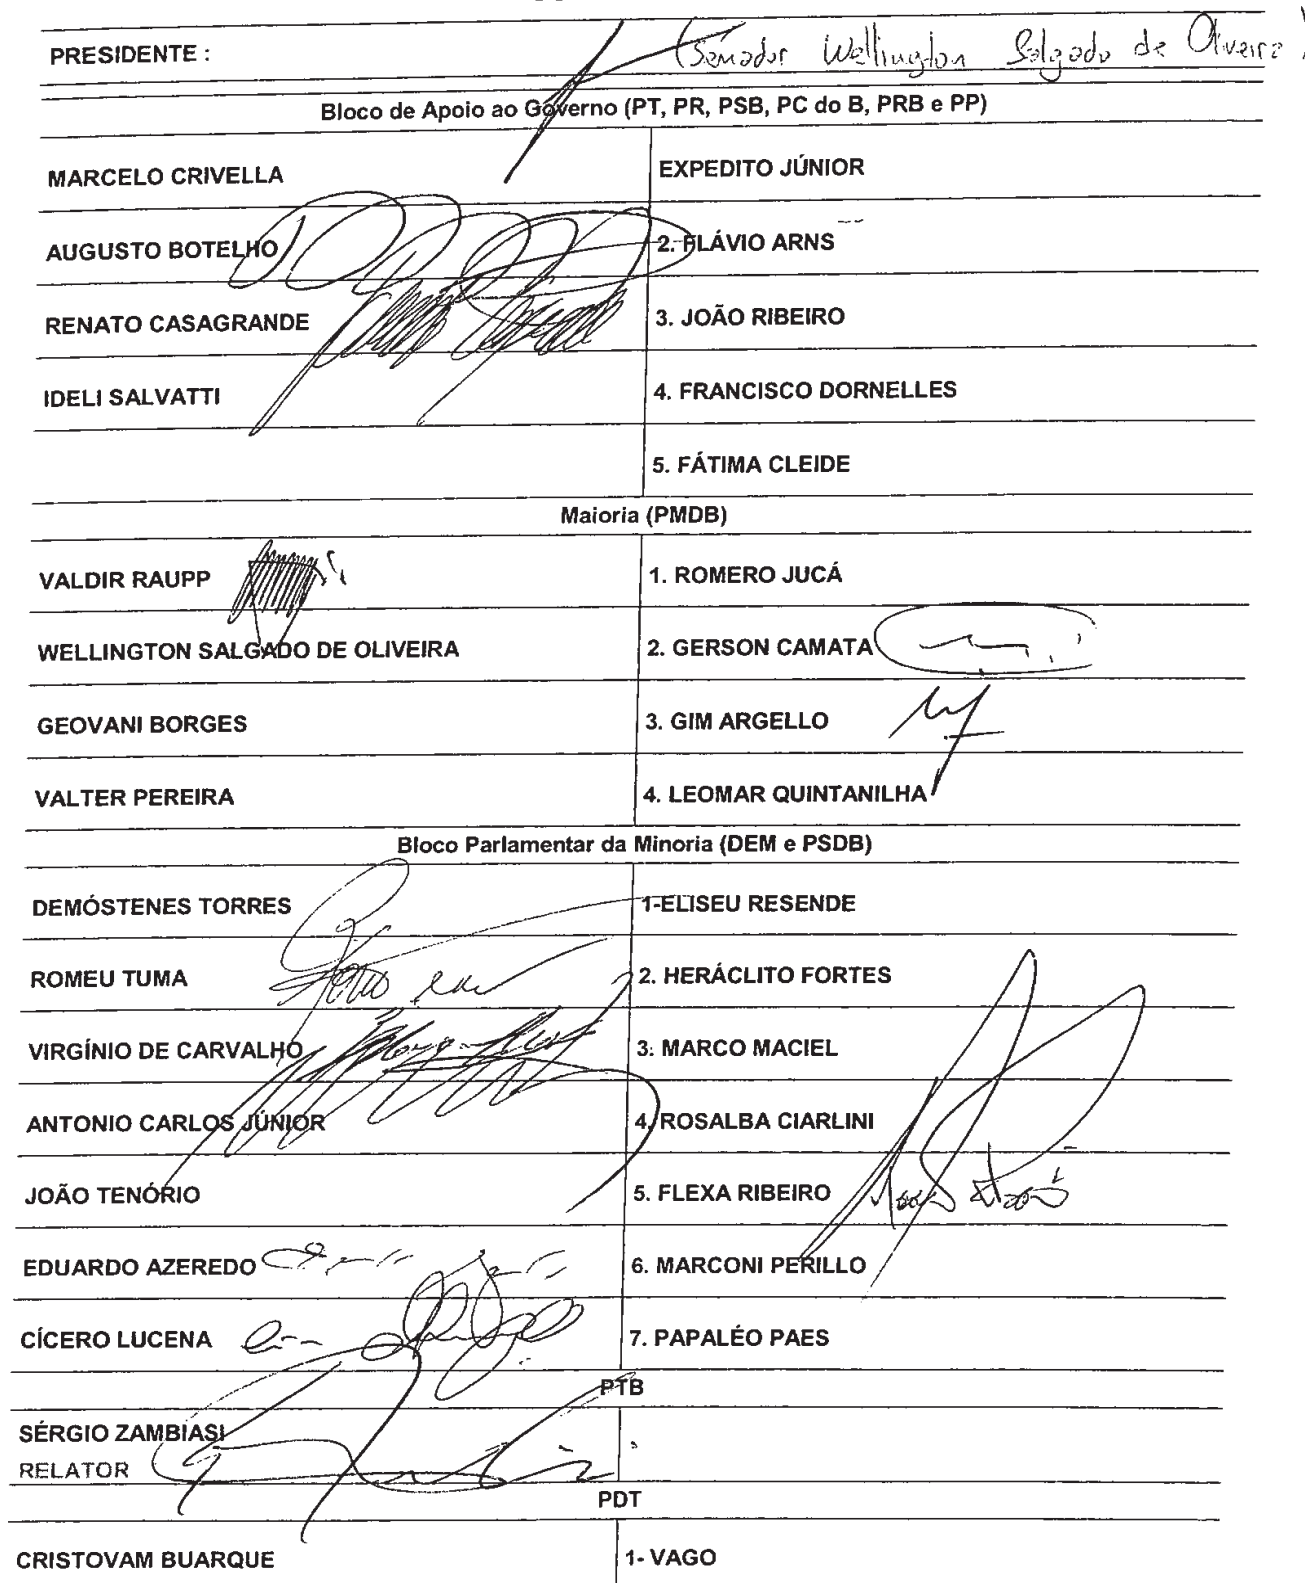 PRESIDENTE : (Senador Wellington Salgado de Oliveira)
Bloco de Apoio ao Governo (PT, PR, PSB, PC do B, PRB e PP)
MARCELO CRIVELLA EXPEDITO JÚNIOR
AUGUSTO BOTELHO 2. FLÁVIO ARNS
RENATO CASAGRANDE 3. JOÃO RIBEIRO
IDELI SALVATTI 4. FRANCISCO DORNELLES
5. FÁTIMA CLEIDE
Maioria (PMDB)
VALDIR RAUPP 1. ROMERO JUCÁ
WELLINGTON SALGADO DE OLIVEIRA 2. GERSON CAMATA
GEOVANI BORGES 3. GIM ARGELLO
VALTER PEREIRA 4. LEOMAR QUINTANILHA
Bloco Parlamentar da Minoria (DEM e PSDB)
DEMÓSTENES TORRES 1-ELISEU RESENDE
ROMEU TUMA 2. HERÁCLITO FORTES
VIRGÍNIO DE CARVALHO 3. MARCO MACIEL
ANTONIO CARLOS JÚNIOR 4. ROSALBA CIARLINI
JOÃO TENÓRIO 5. FLEXA RIBEIRO
EDUARDO AZEREDO 6. MARCONI PERILLO
CÍCERO LUCENA 7. PAPALÉO PAES
PTB
SÉRGIO ZAMBIASI
RELATOR
PDT
CRISTOVAM BUARQUE 1- VAGO